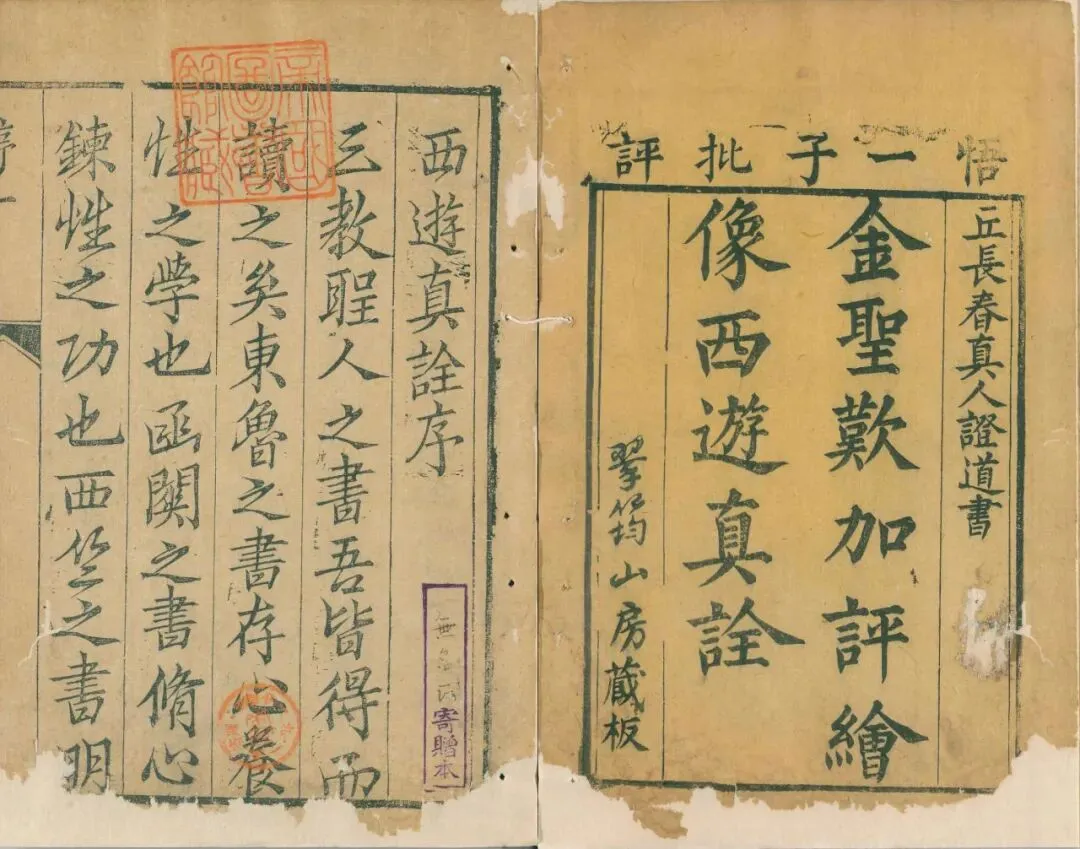 悟一子批評
丘長春真人證道書
金聖歎加評繪
像西遊真詮
翠筠山房藏板
西遊真詮序
三教聖人之書吾皆得而
讀之矣東魯之書存心養
性之學也函關之書脩心
鍊性之功也西竺之書明
寄贈本
帝國
圖書
館藏